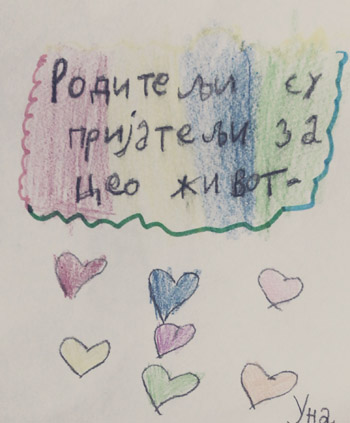 Родитељи су
пријатељи за
цео живот-
Уна